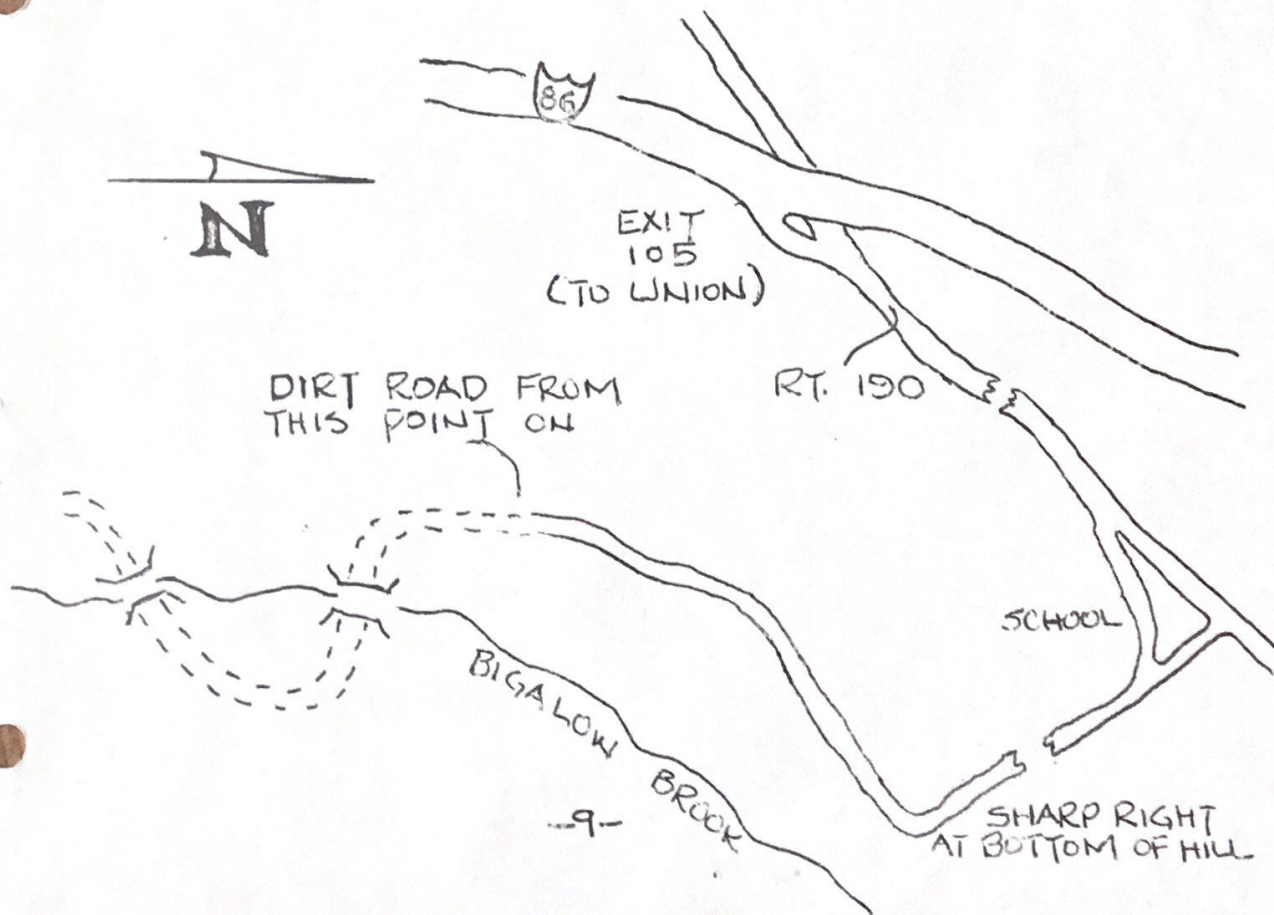 86
N
EXIT
105
(TO UNION)
RT. 190
DIRT ROAD FROM
THIS POINT ON
SCHOOL
BIGALOW BROOK
-9-
SHARP RIGHT
AT BOTTOM OF HILL